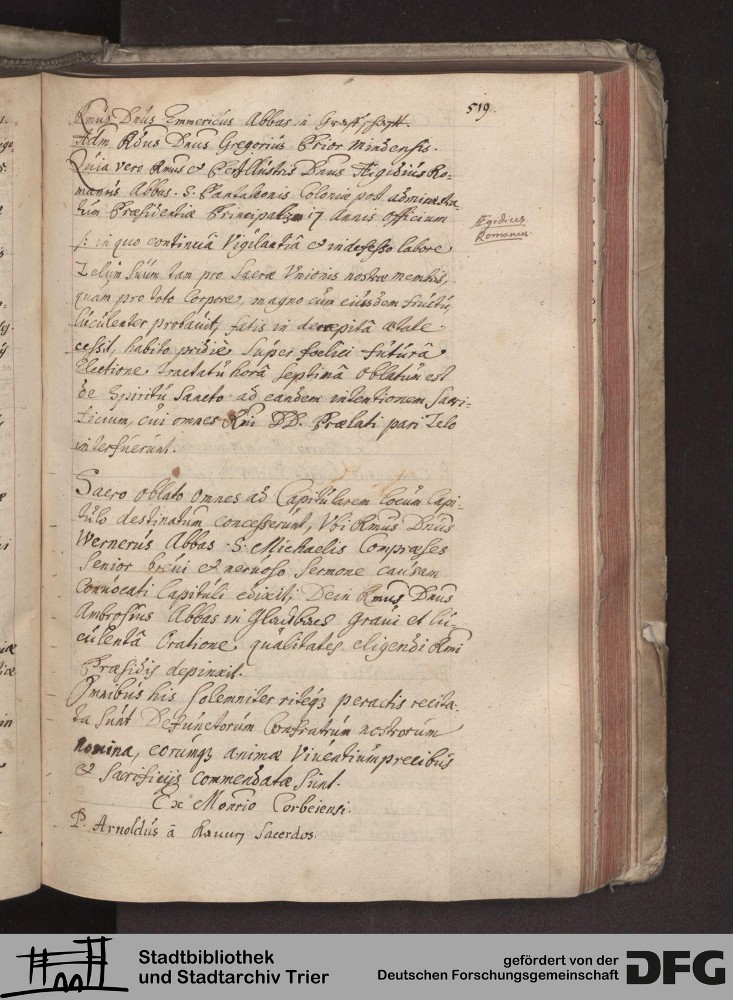 519.
Rmus Dnus Emmericus Abbas in Graffschafft.
Adm. Rdus Dnus Gregorius Prior Mindensis.
Quia vero Rmus et Perillustris Dnus Ægidius Ro-
manus Abbas S. Pantaleonis Coloniæ post administra-
tum Præsidentiæ Principalem 17 annis officium
/: in quo continuâ Vigilantiâ et indefesso labore
Zelum suum tam pro Sacræ Unionis nostræ membris,
quam pro toto Corpore, magno cum eiusdem fructu,
luculenter probavit, satis in decrepitâ ætate
cessit, habito pridiè super foelici futurâ
Electione tractatu horâ septimâ oblatum est
de Spiritu Sancto ad eandem intentionem Sacri-
ficium, cui omnes Rmi DD. Prælati pari Zelo
interfuerunt.
Ægidius
Romanus
Sacro oblato omnes ad Capitularem locum Capi-
tulo destinatum concesserunt, Ubi Rmus Dnus
Wernerus Abbas S. Michaelis Compræses
Senior brevi et nervoso sermone causam
Convocati Capituli edixit; Dein Rmus Dnus
Ambrosius Abbas in Gladbach gravi et lu-
culentâ Oratione, qualitates eligendi Rmi
Præsidis depinxit.
Omnibus his solemniter riteq3 peractis recita-
ta sunt Defunctorum Confratrum nostrorum
Nomina, eorumq3 animæ Viventium precibus
et sacrificijs commendatæ sunt.
Ex Monrio Corbeiensi.
P. Arnoldus à Sacerdos.
Stadtbibliothek
und Stadtarchiv Trier
gefördert von der
Deutschen Forschungsgemeinschaft
DFG